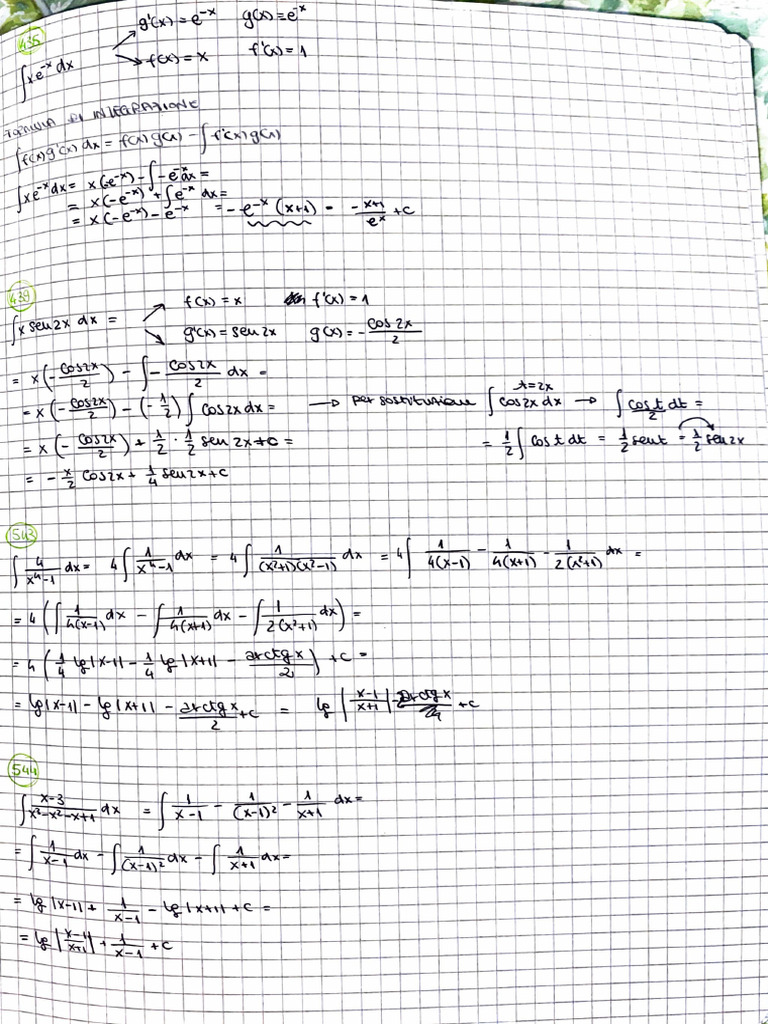 435
∫xe^-x dx → g'(x) = e^-x   g(x) = e^-x
→ f(x) = x   f'(x) = 1
FORMULA DI INTEGRAZIONE
∫f(x)g'(x) dx = f(x)g(x) - ∫f'(x)g(x)
∫xe^-x dx = x(-e^-x) - ∫-e^-x dx =
= x(-e^-x) + ∫e^-x dx =
= x(-e^-x) - e^-x = -e^-x (x+1) = -x+1/e^x + c
439
∫x sen2x dx = → f(x) = x   f'(x) = 1
→ g'(x) = sen2x   g(x) = -cos2x/2
= x(-cos2x/2) - ∫-cos2x/2 dx =
= x(-cos2x/2) - (-1/2)∫cos2x dx = → per sostituzione ∫cos2x dx t=2x → ∫cost/2 dt =
= x(-cos2x/2) + 1/2 · 1/2 sen2x+c =   = 1/2∫cost dt = 1/2 sent = 1/2 sen2x
= -x/2 cos2x + 1/4 sen2x+c
543
∫4/(x^4-1) dx = 4∫1/(x^4-1) dx = 4∫1/((x²+1)(x²-1)) dx = 4∫1/(4(x-1)) - 1/(4(x+1)) - 1/(2(x²+1)) dx =
= 4(∫1/(4(x-1)) dx - ∫1/(4(x+1)) dx - ∫1/(2(x²+1)) dx) =
= 4(1/4 lg|x-1| - 1/4 lg|x+1| - arctgx/2) + c =
= lg|x-1| - lg|x+1| - arctgx/2 + c = lg|x-1/x+1| - arctgx + c
544
∫(x-3)/(x³-x²-x+1) dx = ∫1/(x-1) - 1/(x-1)² - 1/(x+1) dx =
= ∫1/(x-1) dx - ∫1/(x-1)² dx - ∫1/(x+1) dx =
= lg|x-1| + 1/(x-1) - lg|x+1| + c =
= lg|x-1/x+1| + 1/(x-1) + c